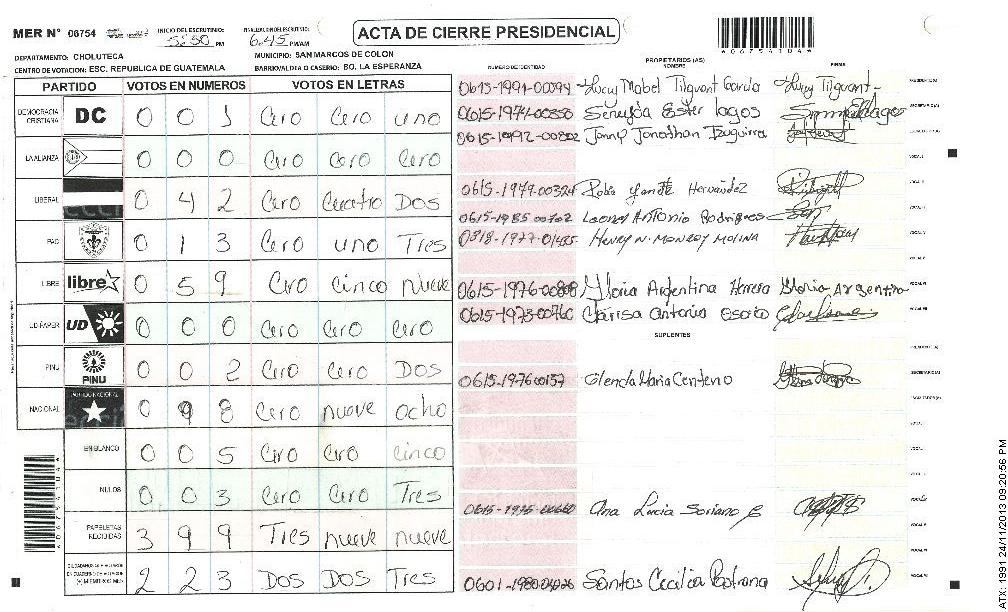 MER Nº 06754
INICIO DEL ESCRUTINIO:
5:30 PM
FINALIZACION ESCRUTINIO:
6:45 PM/AM
ACTA DE CIERRE PRESIDENCIAL
*06754104*
DEPARTAMENTO: CHOLUTECA
MUNICIPIO: SAN MARCOS DE COLON
CENTRO DE VOTACION: ESC. REPUBLICA DE GUATEMALA
BARRIO/ALDEA O CASERIO: BO. LA ESPERANZA
PARTIDO VOTOS EN NUMEROS VOTOS EN LETRAS
DEMOCRACIA CRISTIANA DC 0 0 1 Cero Cero uno
LA ALIANZA 0 0 0 Cero Cero Cero
LIBERAL 0 4 2 Cero Cuatro Dos
PAC 0 1 3 Cero uno Tres
LIBRE libre 0 5 9 Cero cinco nueve
UD/FAPER UD 0 0 0 Cero Cero Cero
PINU PINU 0 0 2 Cero Cero Dos
NACIONAL PARTIDO NACIONAL 0 9 8 Cero nueve ocho
EN BLANCO 0 0 5 Cero Cero cinco
NULOS 0 0 3 Cero Cero Tres
PAPELETAS RECIBIDAS 3 9 9 Tres nueve nueve
2 2 3 Dos Dos Tres
NUMERO DE IDENTIDAD
PROPIETARIOS (AS)
NOMBRE
FIRMA
0615-1991-00394 Lucy Mabel Tilguant Garcia Lucy Tilguant
Ester Lagos
0615-1992-00802 Jonny Jonathan Izaguirre
0615-1979-00324 Yanete Hernández
0615-1985-00702 Leonel Antonio Rodriguez
HENRY N. MONROY MOLINA
0615-1976-00808 Gloria Argentina Herrera Gloria Argentina
0615-1973-00760 Clarisa Antonia Osorio
SUPLENTES
0615-1976-00157 Glenda Maria Centeno
0615-1975-00660 Ana Lucia Soriano
Santos Cecilia Pastrana
ATX: 1991 24/11/2013 09:20:56 PM